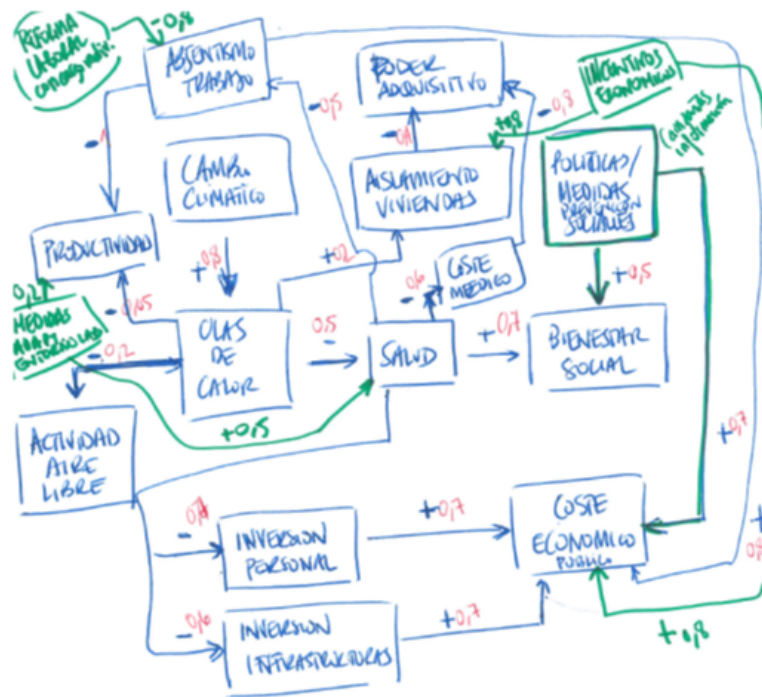 REFORMA
LABORAL
-0,8
ABSENTISMO
TRABAJO
PODER
ADQUISITIVO
INCENTIVOS
ECONOMICOS
-0,5
-0,8
+0,8
CAMBIO
CLIMATICO
AISLAMIENTO
VIVIENDAS
POLITICAS/
MEDIDAS
PREVENCIÓN
SOCIALES
(campañas
información)
PRODUCTIVIDAD
+0,8
+0,2
COSTE
MEDICO
-0,6
+0,5
0,2
MEDIDAS
-0,2
OLAS
DE
CALOR
0,5
-
SALUD
+0,7
BIENESTAR
SOCIAL
+0,5
ACTIVIDAD
AIRE
LIBRE
+0,7
INVERSION
PERSONAL
+0,7
COSTE
ECONOMICO
PUBLICO
-0,6
INVERSION
INFRASTRUCTURAS
+0,7
+0,8